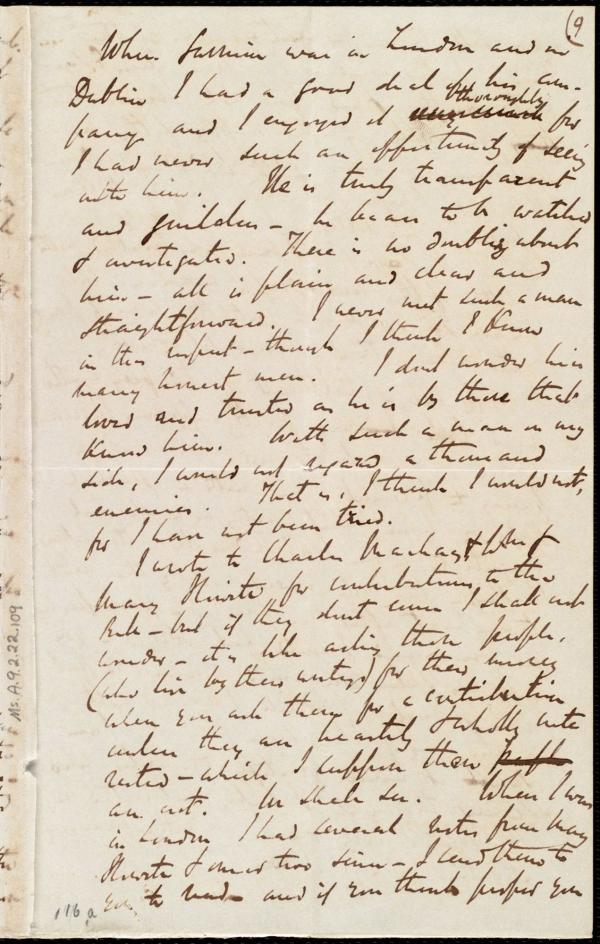 (9
When Garrison was in London and in
Dublin I had a good deal of his com-
pany and I enjoyed it thoroughly for
I had never such an opportunity of seeing
into him. He is truly transparent
and guileless – he bears to be watched
& investigated. There is no doubling about
him – all is plain and clear and
straightforward. I never met such a man
in this respect – though I think I know
many honest men. I dont wonder he is
loved and trusted as he is by those that
know him. With such a man on my
side, I would not regard a thousand
enemies. That is, I think I would not,
for I have not been tried.
I wrote to Charles Mackay &
Mary Howitt for contributions to the
Bell – but if they dont come I shall not
wonder – it is like asking these people,
(who live by their writings) for their money
when you ask them for a contribution
unless they are heartily & wholly inte
rested – which I suppose these
are not. We shall see. When I was
in London I had several notes from Mary
Howitt & one or two since – I send them to
you to read – and if you think proper you
Ms. A.9.2.22.109
116 a